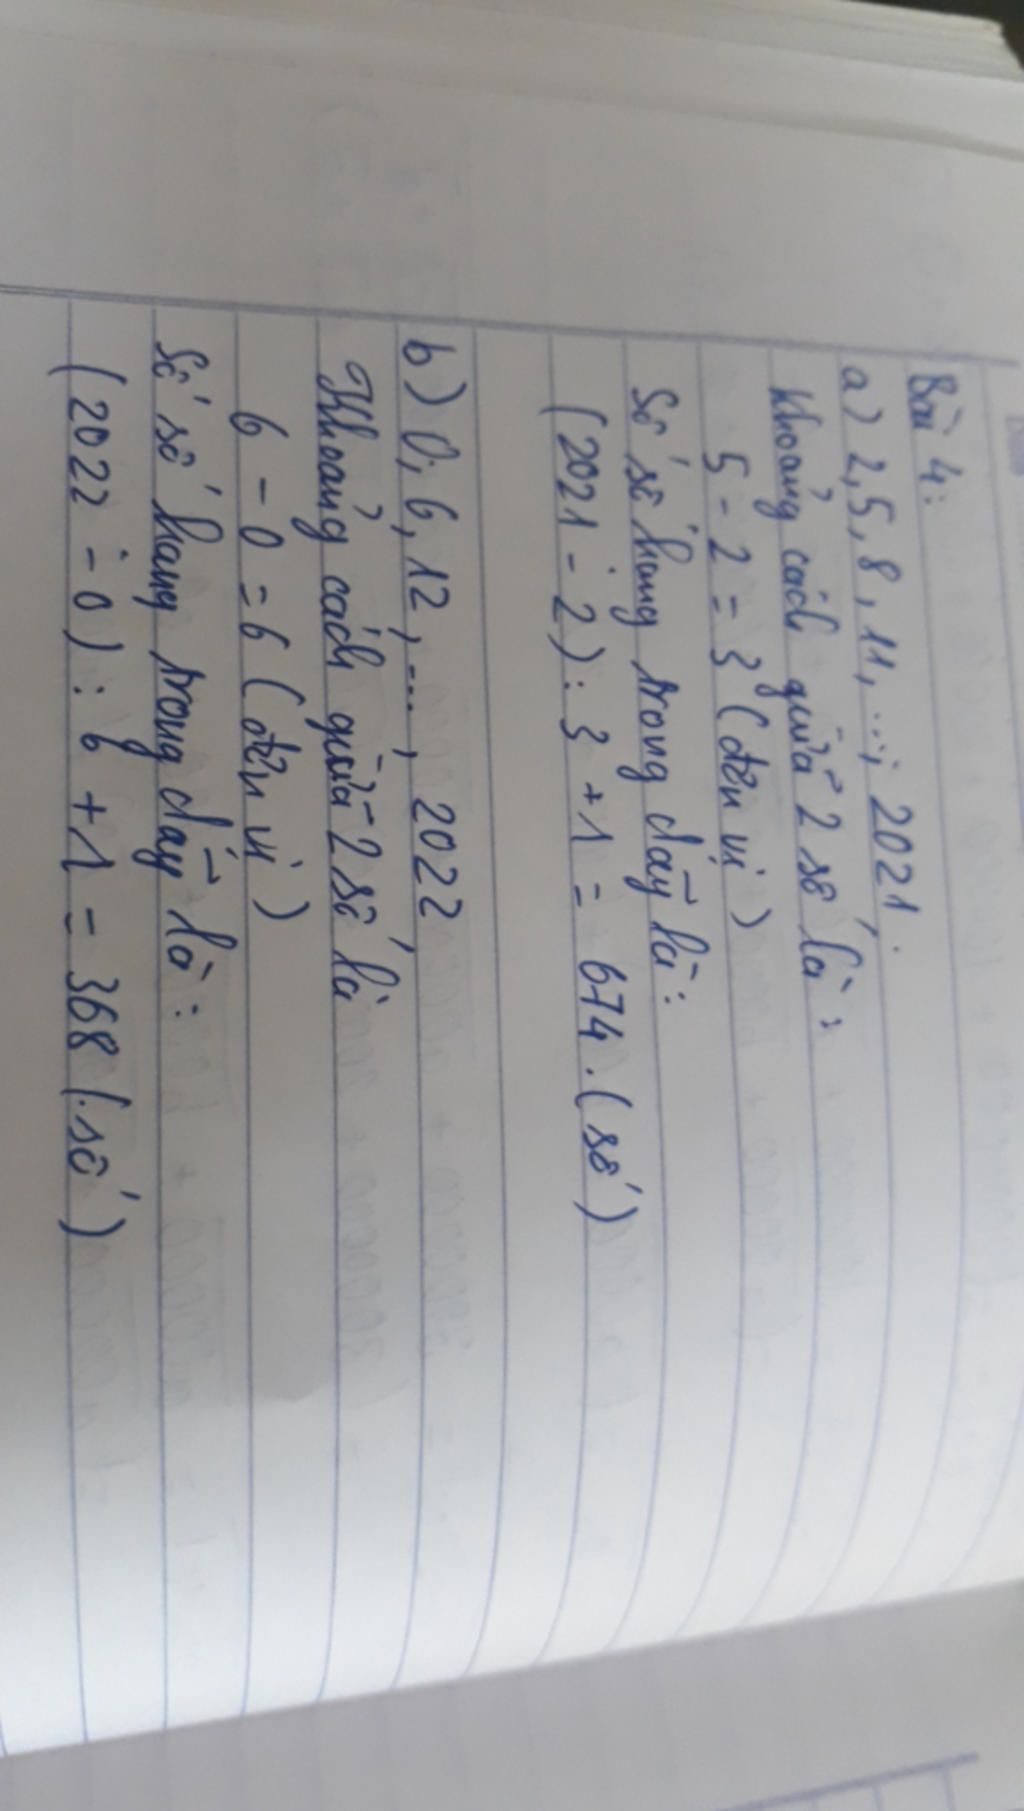 Bài 4:
a) 2, 5, 8, 11, ...; 2021.
Khoảng cách giữa 2 số là:
5 - 2 = 3 (đơn vị)
Số số hạng trong dãy là:
(2021 - 2) : 3 + 1 = 674. (số)
b) 0; 6, 12, ..., 2022
Khoảng cách giữa 2 số là
6 - 0 = 6 (đơn vị)
Số số hạng trong dãy là:
(2022 - 0) : 6 + 1 = 368 (số)